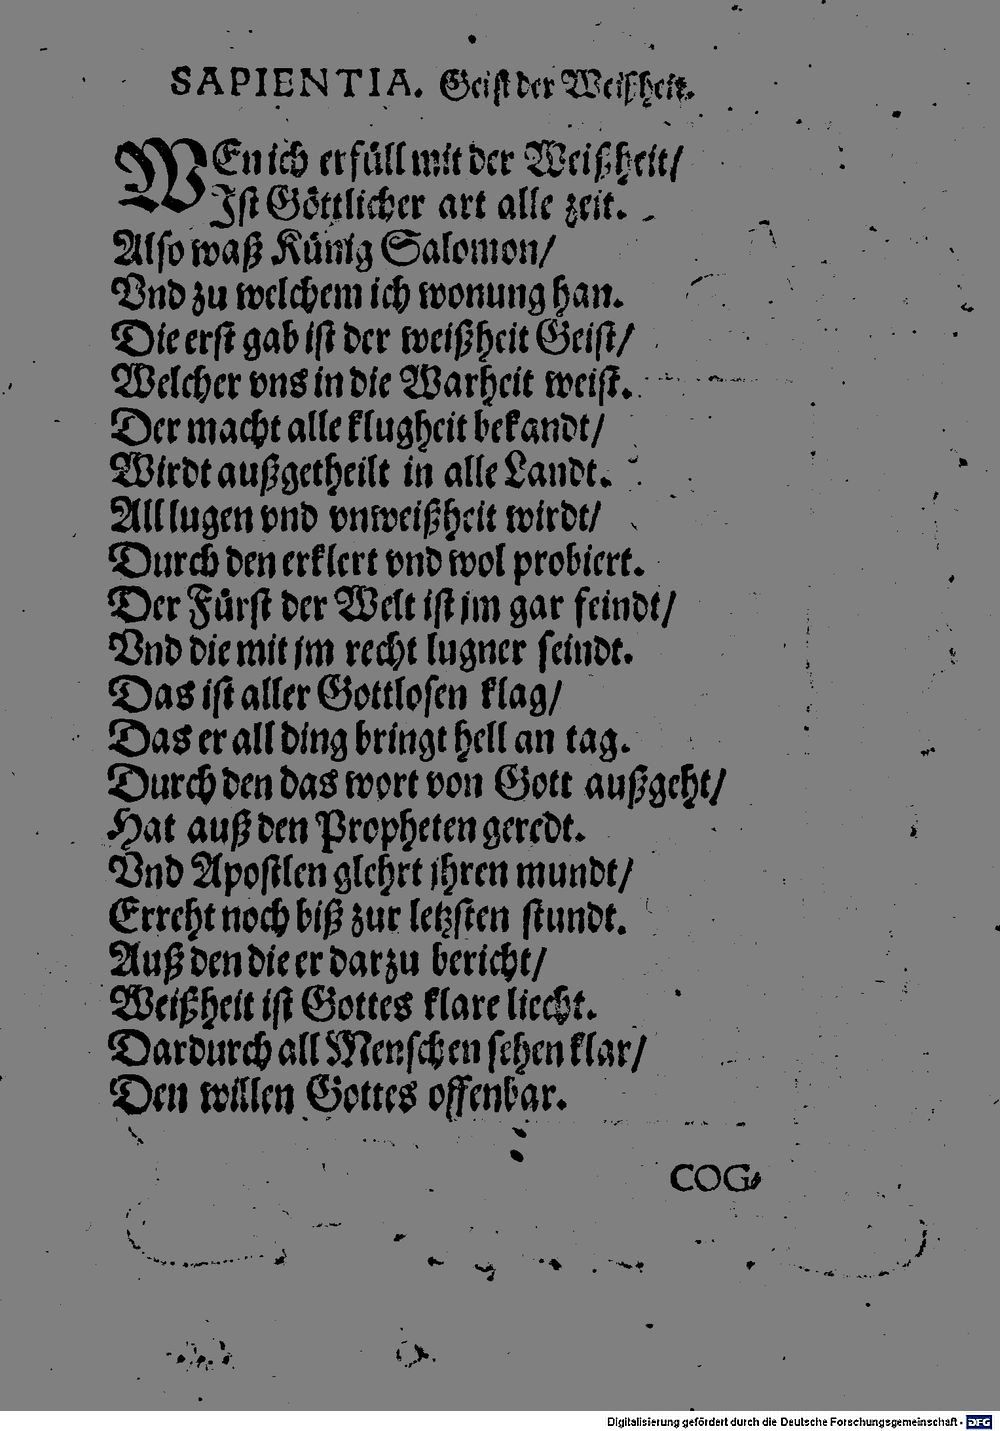 SAPIENTIA. Geist der Weißheit.
WEn ich erfüll mit der Weißheit/
Ist Göttlicher art alle zeit.
Also waß Künig Salomon/
Vnd zu welchem ich wonung han.
Die erst gab ist der weißheit Geist/
Welcher vns in die Warheit weist.
Der macht alle klugheit bekandt/
Wirdt außgetheilt in alle Landt.
All lugen vnd vnweißheit wirdt/
Durch den erklert vnd wol probiert.
Der Fürst der Welt ist jm gar feindt/
Vnd die mit jm recht lugner seindt.
Das ist aller Gottlosen klag/
Das er all ding bringt hell an tag.
Durch den das wort von Gott außgeht/
Hat auß den Propheten geredt.
Vnd Apostlen glehrt jhren mundt/
Erreht noch biß zur letzsten stundt.
Auß den die er darzu bericht/
Weißheit ist Gottes klare liecht.
Dardurch all Menschen sehen klar/
Den willen Gottes offenbar.
COG-
Digitalisierung gefördert durch die Deutsche Forschungsgemeinschaft - DFG